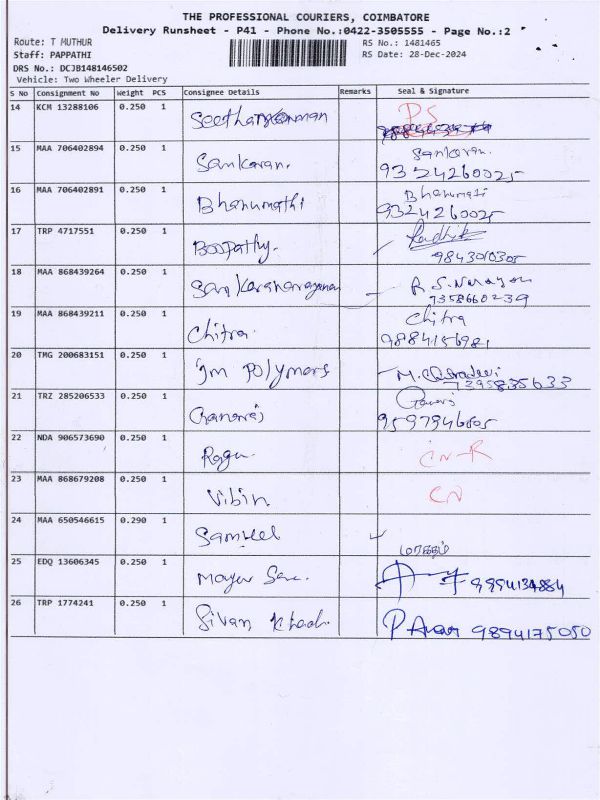 THE PROFESSIONAL COURIERS, COIMBATORE
Delivery Runsheet - P41 - Phone No.:0422-3505555 - Page No.:2
Route: T MUTHUR RS No.: 1481465
Staff: PAPPATHI RS Date: 28-Dec-2024
DRS No.: DCJB148146502
Vehicle: Two Wheeler Delivery
S No Consignment No Weight PCS Consignee Details Remarks Seal & Signature
14 KCM 13288106 0.250 1 PS
15 MAA 706402894 0.250 1 Sankaran. Sankaran.
9324260025
16 MAA 706402891 0.250 1 Bhanumathi Bhanumati
9324260025
17 TRP 4717551 0.250 1 Boopathy.
9843010305
18 MAA 868439264 0.250 1 Sankaranarayanan R.S.Narayan
7358660239
19 MAA 868439211 0.250 1 Chitra. Chitra
9884156981
20 TMG 200683151 0.250 1 Jm Polymers
7395835633
21 TRZ 285206533 0.250 1
22 NDA 906573690 0.250 1 Ragu. CN-R
23 MAA 868679208 0.250 1 Vibin CN
24 MAA 650546615 0.290 1 Samuel
25 EDQ 13606345 0.250 1 9994134884
26 TRP 1774241 0.250 1 Sivan 9894175050